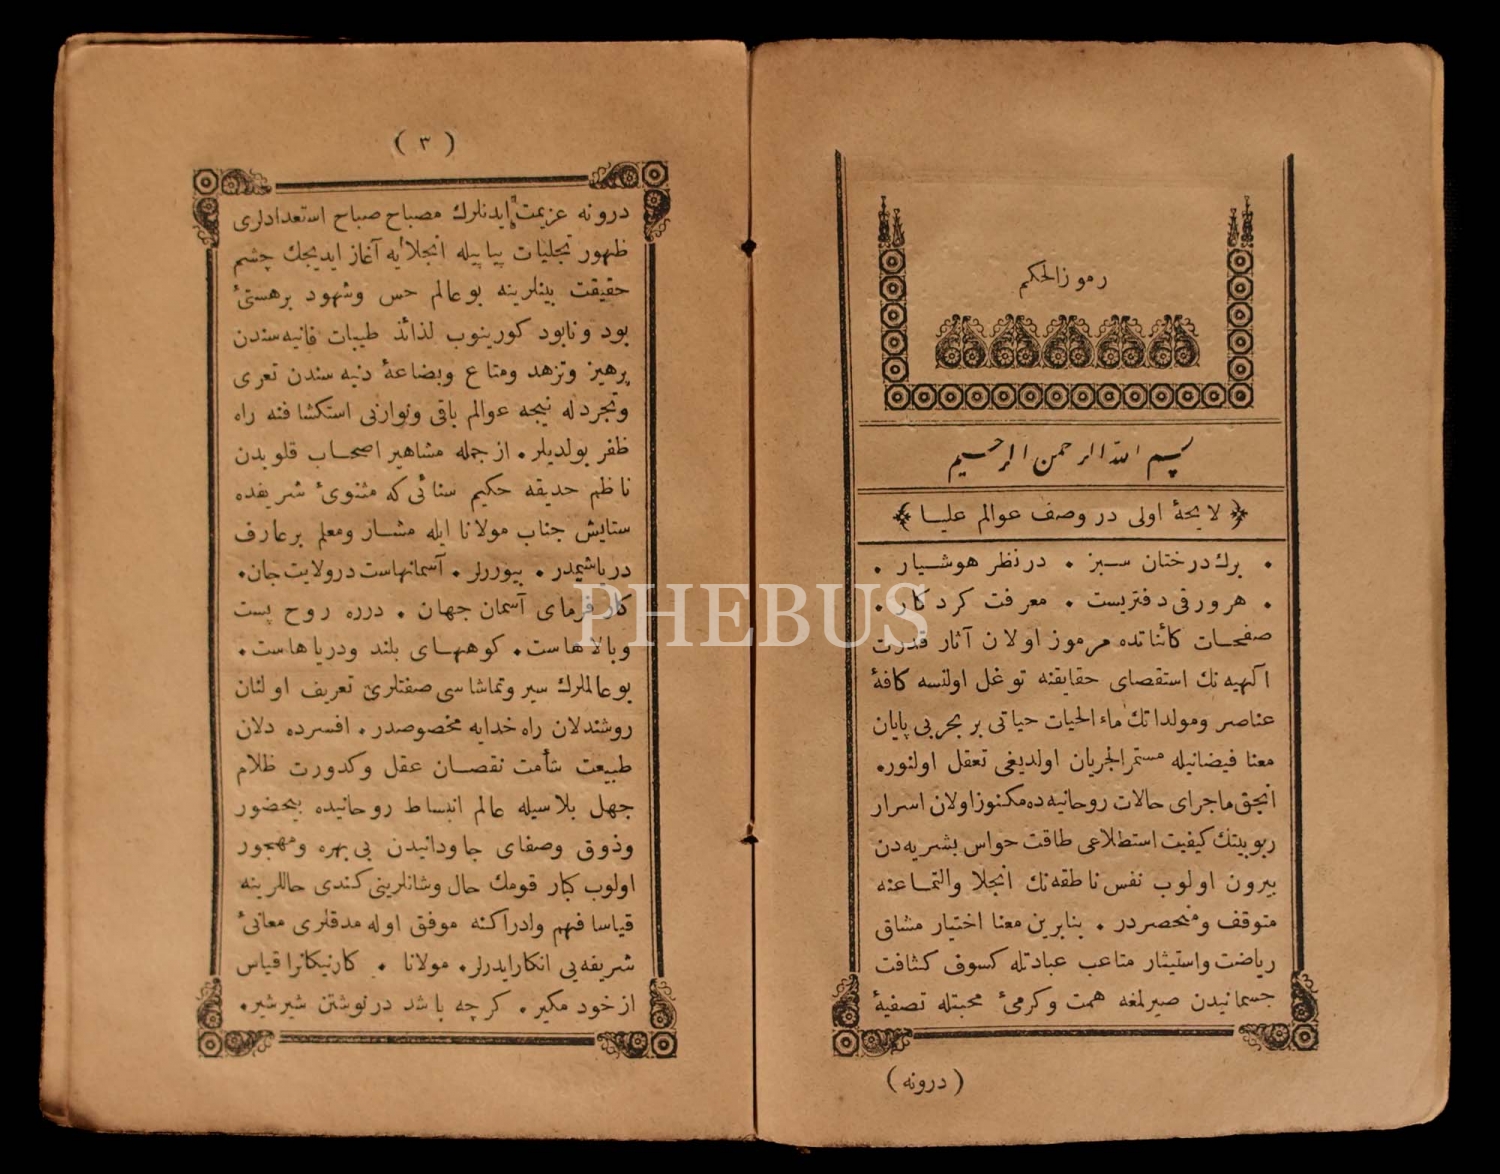 رموزالحكم
بسم الله الرحمن الرحيم
لايحۀ اولى در وصف عوالم عليا
٠ برك درختان سبز ٠ در نظر هوشيار ٠
٠ هر ورقى دفتريست ٠ معرفت كردكار ٠
صفحات كائناتده مرموز اولان آثار قدرت
آلهيه نك استقصاى حقايقنه توغل اولنسه كافۀ
عناصر ومولداتك ماء الحيات حياتى بر بحر بى پايان
معنا فيضانيله مستمر الجريان اولديغى تعقل اولنور٠
انجق ماجراى حالات روحانيه ده مكنوز اولان اسرار
ربوبيتك كيفيت استطلاعى طاقت حواس بشريه دن
بيرون اولوب نفس ناطقه نك انجلا والتماعنه
متوقف ومنحصردر ٠ بنابرين معنا اختيار مشاق
رياضت واستيثار متاعب عبادتله كسوف كثافت
جسمانيدن صيرلمغه همت وكرمئ محبتله تصفيۀ
( درونه )
( ٣ )
درونه عزيمت ايدنلرك مصباح صباح استعدادلرى
ظهور تجليات پياپيله انجلايه آغاز ايديجك چشم
حقيقت بينلرينه بو عالم حس وشهود برهستئ
بود ونابود كورينوب لذائذ طيبات فانيه سندن
پرهيز وتزهد ومتاع وبضاعۀ دنيه سندن تعرى
وتجردله نيجه عوالم باقى ونوازنى استكشافنه راه
ظفر بولديلر٠ از جمله مشاهير اصحاب قلوبدن
ناظم حديقه حكيم سنائى كه مثنوئ شريفده
ستايش جناب مولانا ايله مشار ومعلم بر عارف
درياشيمدر٠ بيوررلر٠ آسمانهاست در ولايت جان٠
كار فرماى آسمان جهان ٠ در ره روح پست
وبالا هاست٠ كوههاى بلند ودريا هاست٠
بو عالملرك سير وتماشاسى صفتلرى تعريف اولنان
روشندلان راه خدايه مخصوصدر٠ افسرده دلان
طبيعت شأمت نقصان عقل وكدورت ظلام
جهل بلاسيله عالم انبساط روحانيده بيحضور
وذوق وصفاى جاودانيدن بى بهره ومهجور
اولوب كبار قومك حال وشانلرينى كندى حاللرينه
قياسا فهم وادراكنه موفق اوله مدقلرى معانئ
شريفه يى انكار ايدرلر٠ مولانا ٠ كار نيكانرا قياس
از خود مكير٠ كرچه باشد در نوشتن شير شير٠
PHEBUS